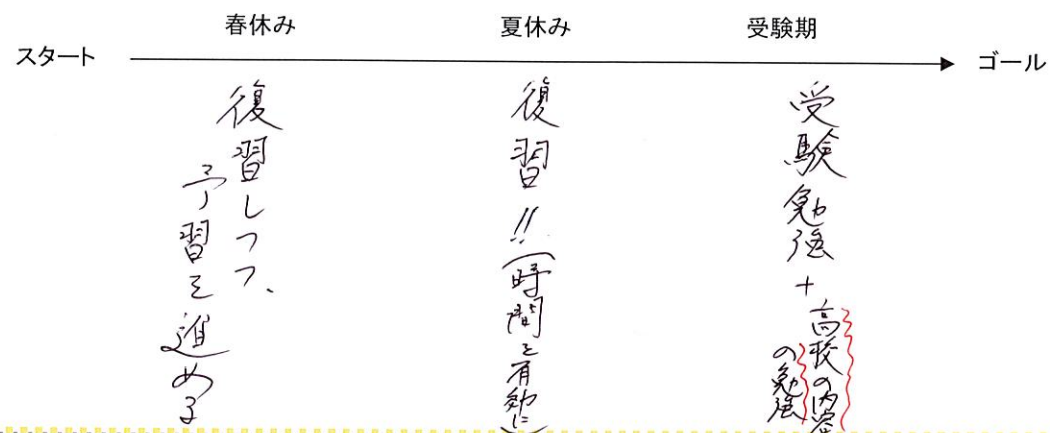 春休み
夏休み
受験期
スタート
ゴール
復習しつつ、
予習を進める
復習!!
(時間を有効に)
受験勉強+
高校の内容
の勉強